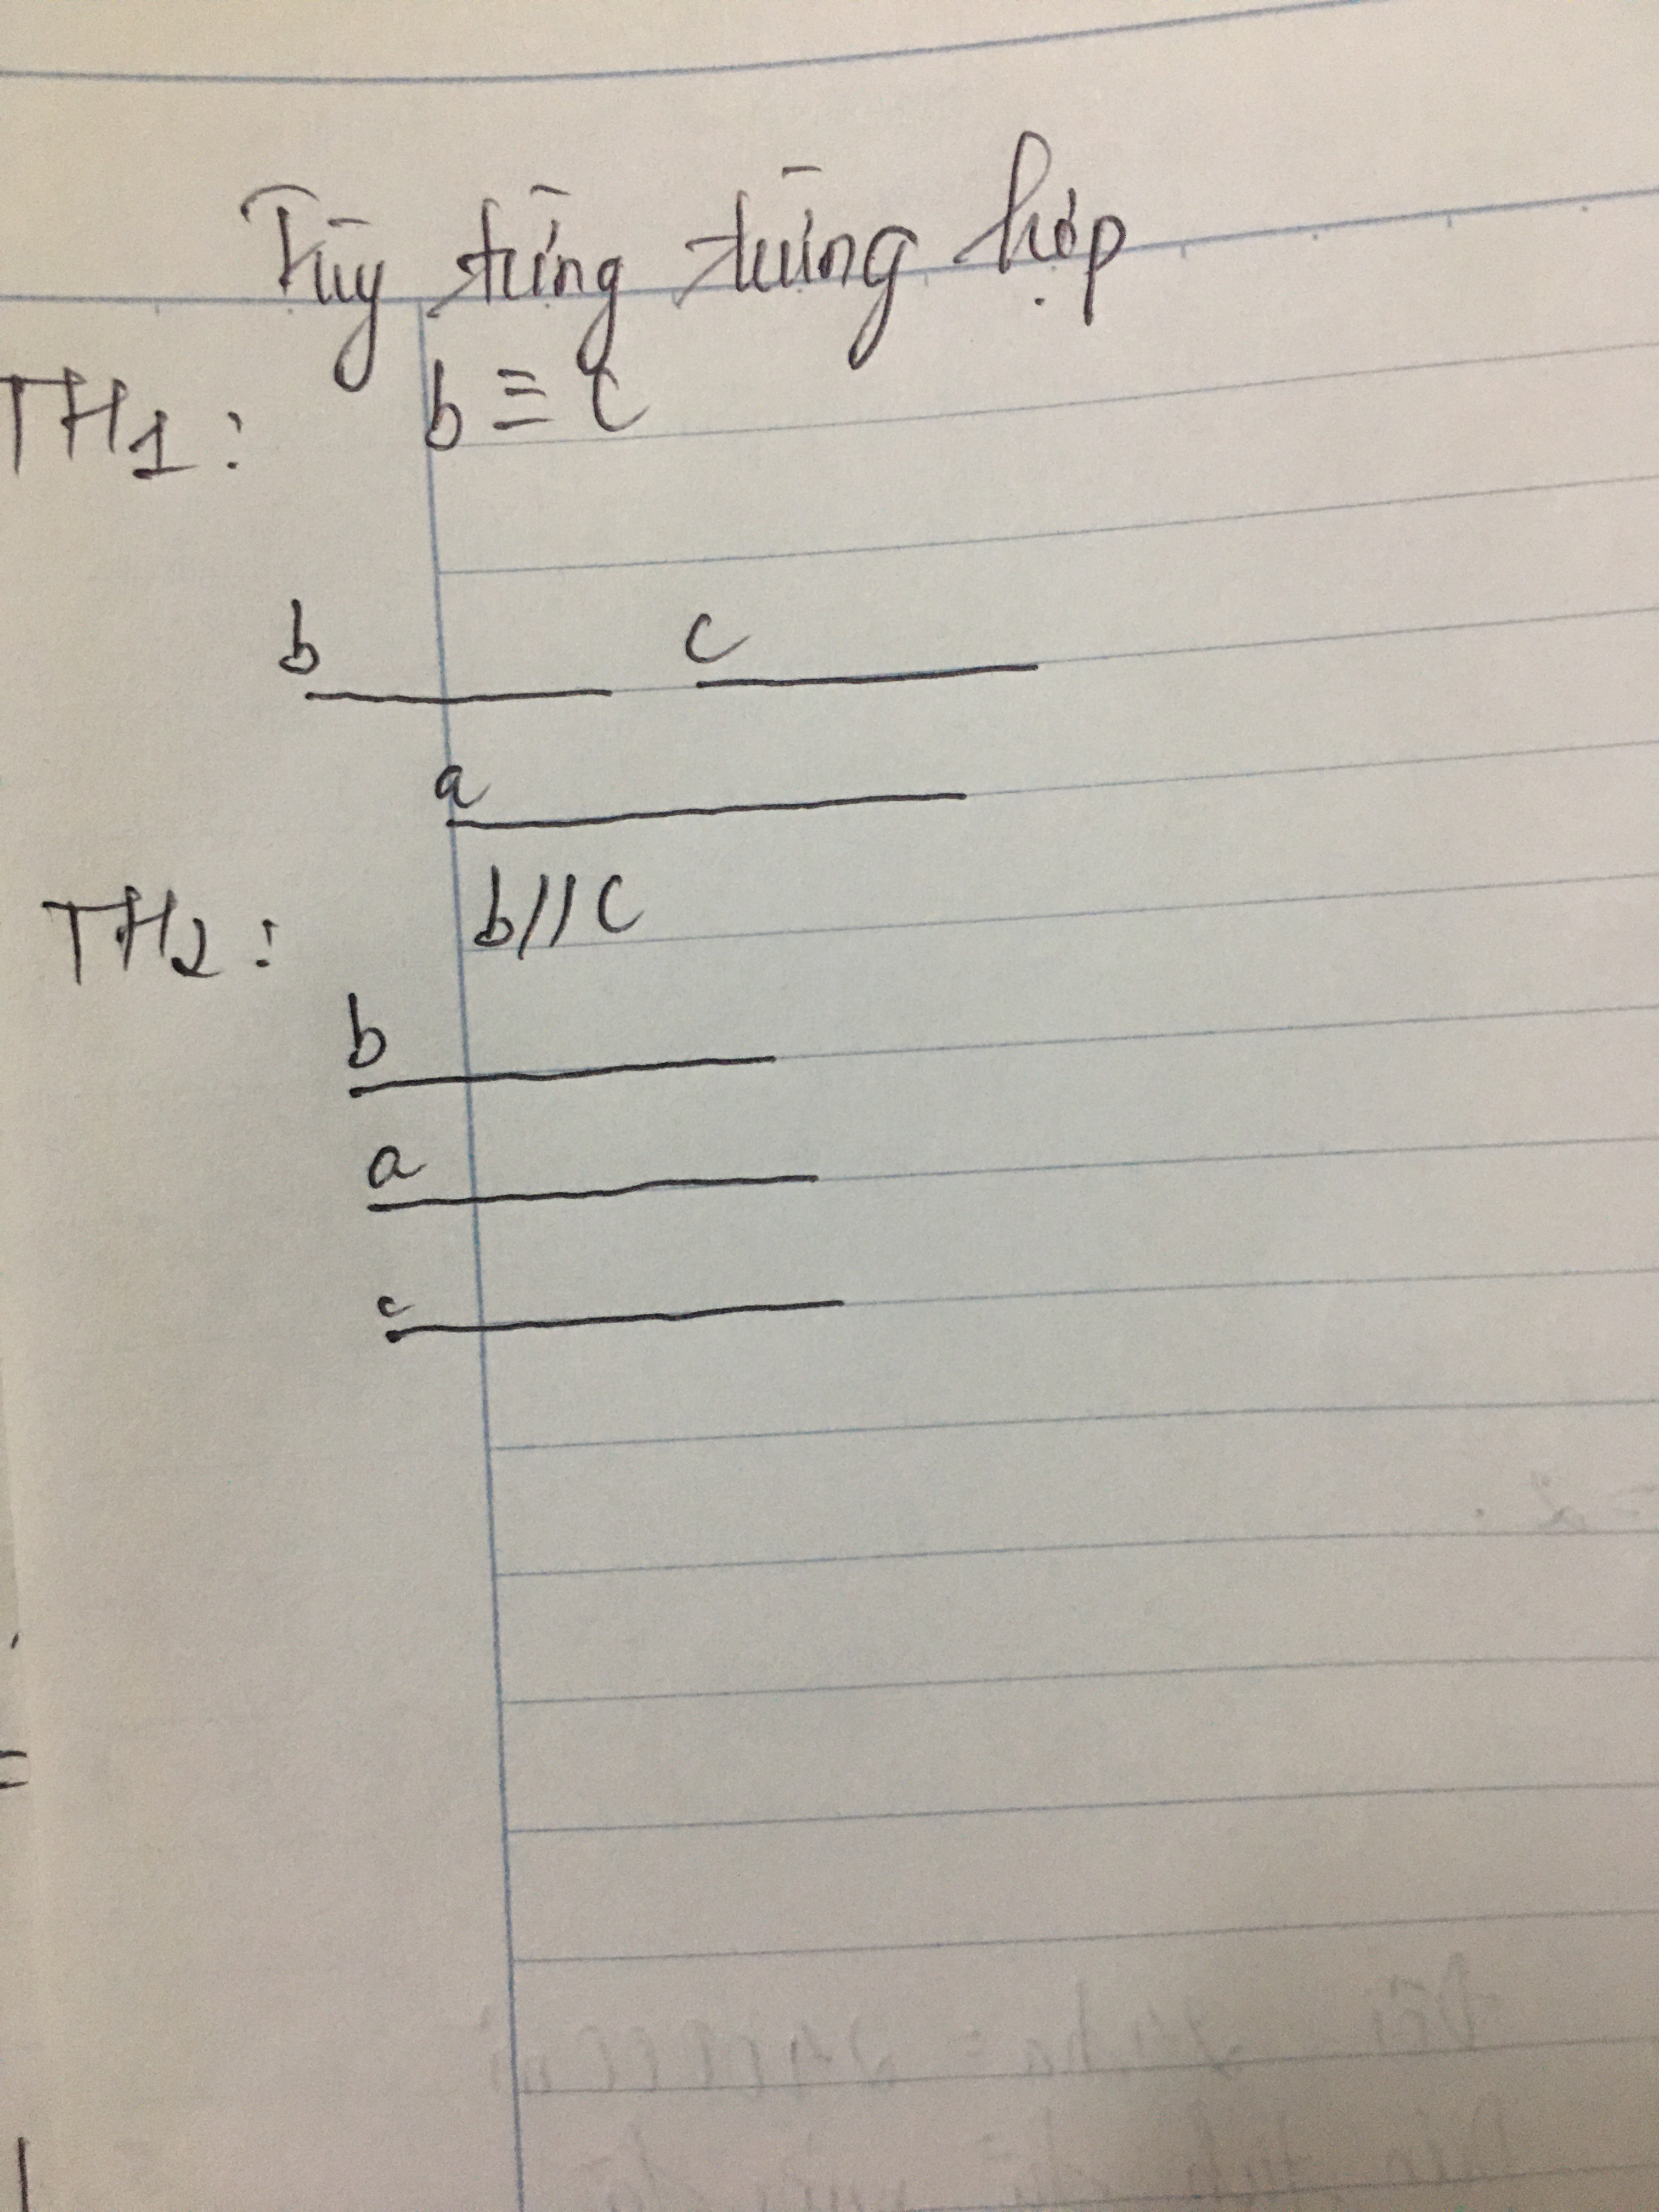 Tùy từng trường hợp
TH1: b ≡ c
b c
a
TH2: b//c
b
a
c
=